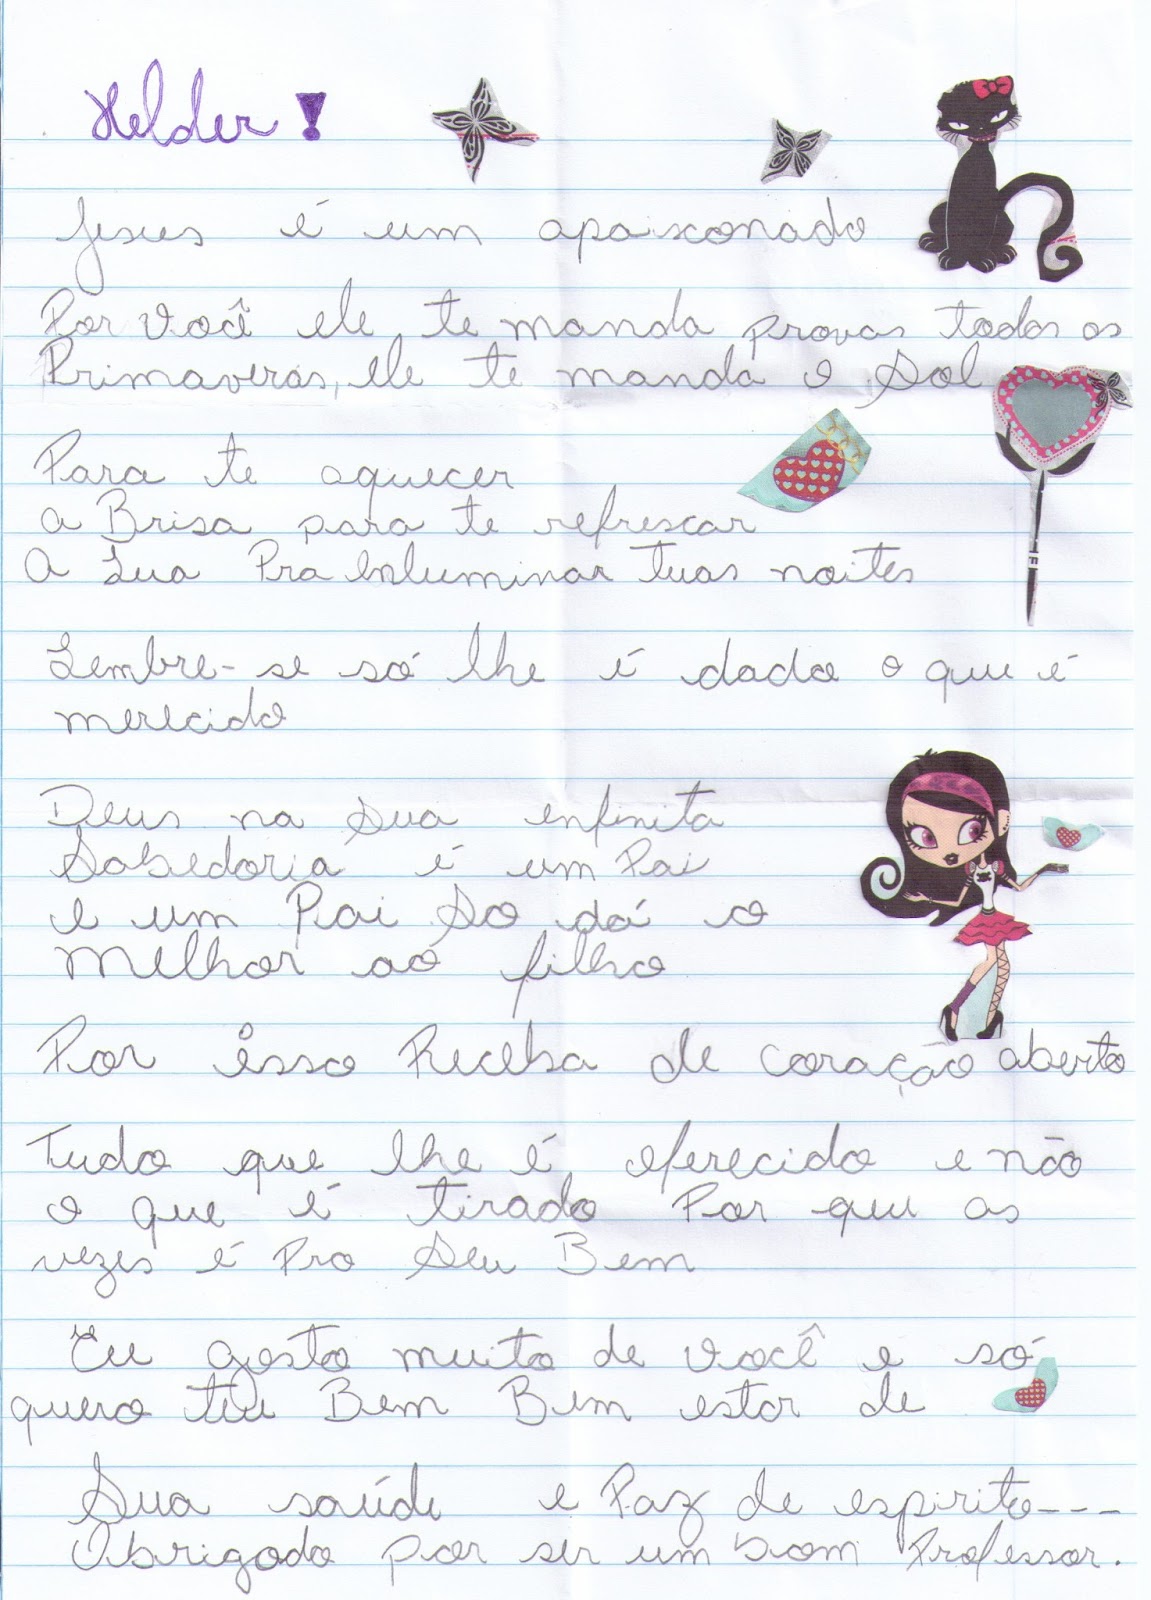 Helder!
Jesus é um apaixonado
Por você ele te manda provas todas as
Primaveras, ele te manda o Sol
Para te aquecer
a Brisa para te refrescar
A Lua Pra enluminar tuas noites
Lembre-se só lhe é dado o que é
merecido
Deus na Sua enfinita
Sabedoria é um Pai
e um Pai So dá o
Melhor ao filho
Por isso Receba de coração aberto
Tudo que lhe é oferecido e não
o que é tirado Por que as
vezes é Pro Seu Bem
Eu gosto muito de você e só
quero teu Bem Bem estar de
Sua saúde e Paz de espirito---
Obrigado por ser um bom Professor.